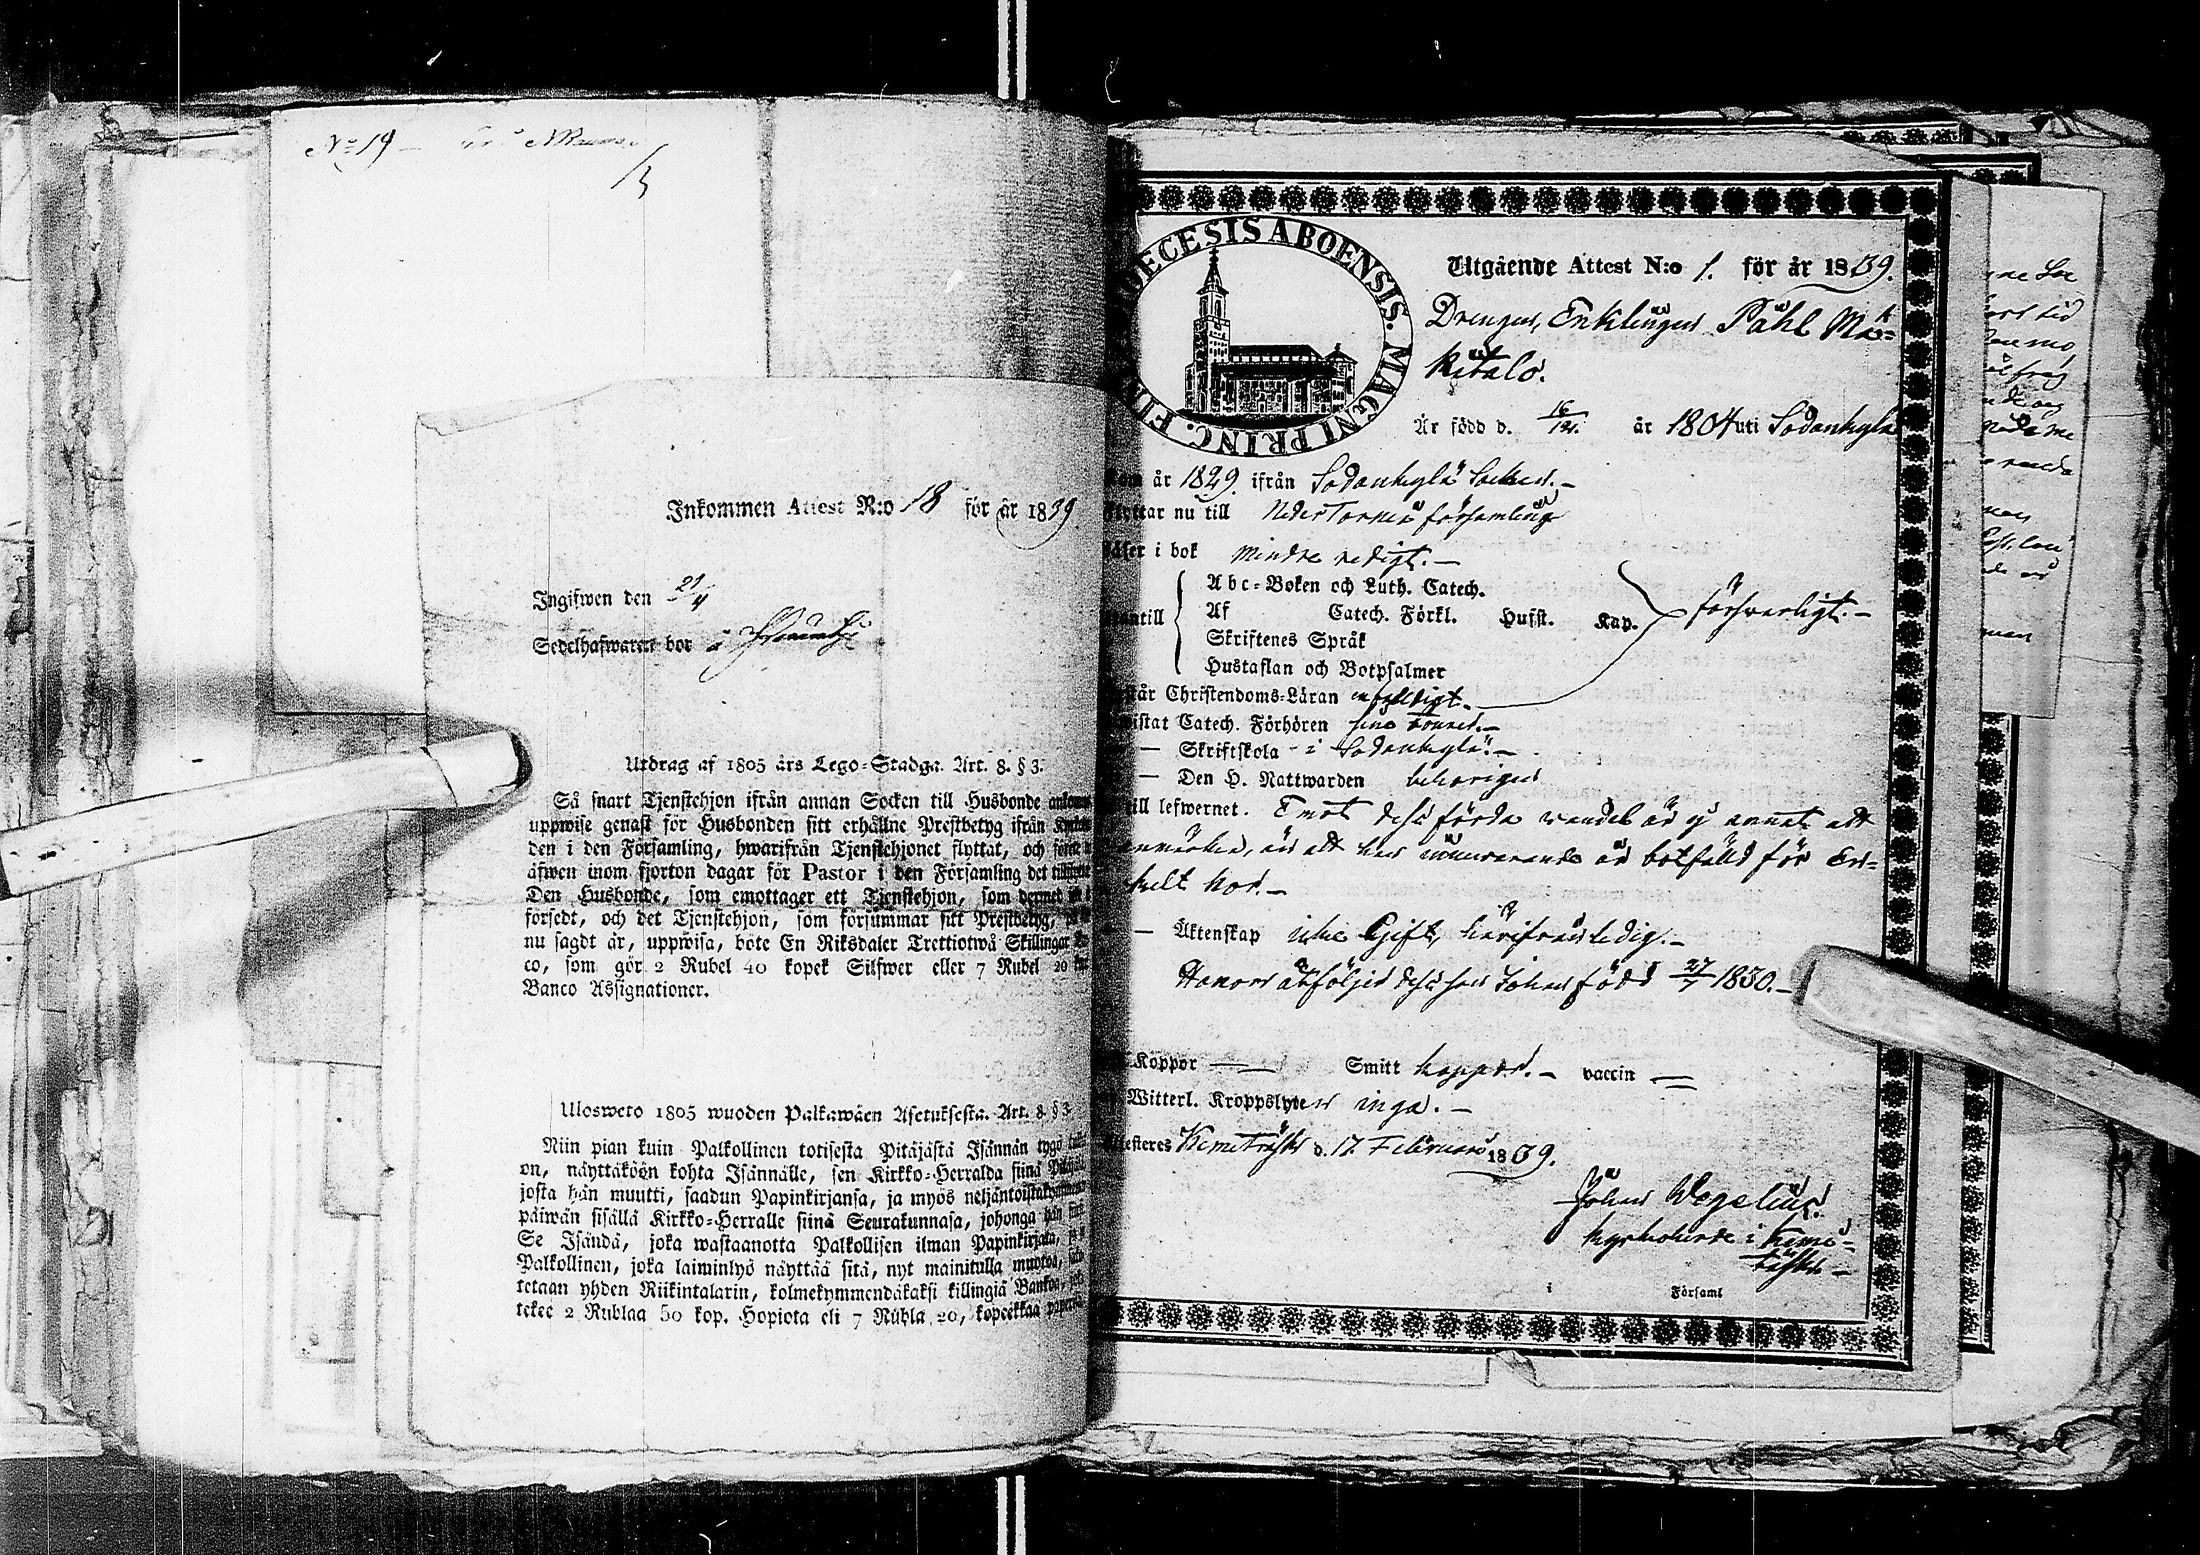 No 19 –
Inkommen Attest N:o 18 för år 1839
Ingifwen den 21/4
Sedelhafwaren bor i
Utdrag af 1805 års Lego-Stadga. Art. 8. § 3.
Så snart Tjenstehjon ifrån annan Socken till Husbonde
uppwise genast för Husbonden sitt erhållne Prestbetyg ifrån
den i den Församling, hwarifrån Tjenstehjonet flyttat, och
äfwen inom fjorton dagar för Pastor i den Församling det
Den Husbonde, som emottager ett Tjenstehjon, som dermed
försedt, och det Tjenstehjon, som försummar sitt Prestbetyg,
nu sagdt är, uppwisa, böte En Riksdaler Trettiotwå Skillingar
co, som gör 2 Rubel 40 kopek Silfwer eller 7 Rubel 20
Banco Assignationer.
Ulosweto 1805 wuoden Palkawäen Asetuksesta. Art. 8 § 3
Niin pian kuin Palkollinen totisesta Pitäjästä Isännän tygö
on, näyttäköön kohta Isännälle, sen Kirkko-Herralda siinä
josta hän muutti, saadun Papinkirjansa, ja myös
päiwän sisällä Kirkko-Herralle siinä Seurakunnasa, johonga hän
Se Isändä, joka wastaanotta Palkollisen ilman Papinkirjata,
Palkollinen, joka laiminlyö näyttää sitä, nyt mainitulla muotoa,
tetaan yhden Riikintalarin, kolmekymmendäkaksi killingiä Bankoa,
tekee 2 Rublaa 50 kop. Hopiota eli 7 Rubla 20, kopeekkaa
DIOECESIS ABOENSIS. MAGNI PRINC.
Utgående Attest N:o 1. för år 1839.
Drengen, Enklingen Påhl Mä-
kitalo.
Är född d. 16/12. år 1804 uti Sodankylä
Kom år 1829. ifrån Sodankylä Socken. –
Flyttar nu till NederTorneå församling
Läser i bok mindre redigt. –
Abc-Boken och Luth. Catech.
utantill Af Catech. Förkl. Husst. Kap. försvarligt. –
Skriftenes Språk
Hustaflan och Botpsalmer
Förstår Christendoms-Läran enfaldigt. –
Bewistat Catech. Förhören sina
— Skriftskola – i Sodankylä. –
— Den H. Nattwarden behörigen
till lefwernet. Emot dess förda wandel är ej annat att
anmärka, än att han är botfälld för En-
kelt hor. –
— Äktenskap icke Gift, härifrån ledig. –
Honom åtföljer dess son Johan född 27/7 1830. –
Koppor — Smitt koppor. – vaccin —
Witterl. Kroppslyten inga. –
Attesteres Kemiträsk d. 17 Februari 1839.
Johan Wegelius.
Kyrkoherde i Kemi-
träsk. –
i Församl